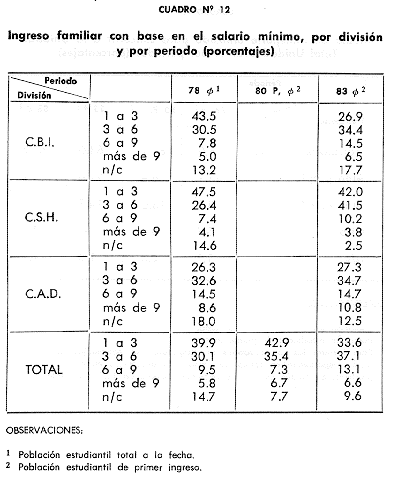 CUADRO Nº 12
Ingreso familiar con base en el salario mínimo, por división
y por periodo (porcentajes)
Periodo
División 78 ϕ¹ 80 P, ϕ² 83 ϕ²
1 a 3 43.5 26.9
3 a 6 30.5 34.4
C.B.I. 6 a 9 7.8 14.5
más de 9 5.0 6.5
n/c 13.2 17.7
1 a 3 47.5 42.0
3 a 6 26.4 41.5
C.S.H. 6 a 9 7.4 10.2
más de 9 4.1 3.8
n/c 14.6 2.5
1 a 3 26.3 27.3
3 a 6 32.6 34.7
C.A.D. 6 a 9 14.5 14.7
más de 9 8.6 10.8
n/c 18.0 12.5
1 a 3 39.9 42.9 33.6
3 a 6 30.1 35.4 37.1
TOTAL 6 a 9 9.5 7.3 13.1
más de 9 5.8 6.7 6.6
n/c 14.7 7.7 9.6
OBSERVACIONES:
1 Población estudiantil total a la fecha.
2 Población estudiantil de primer ingreso.